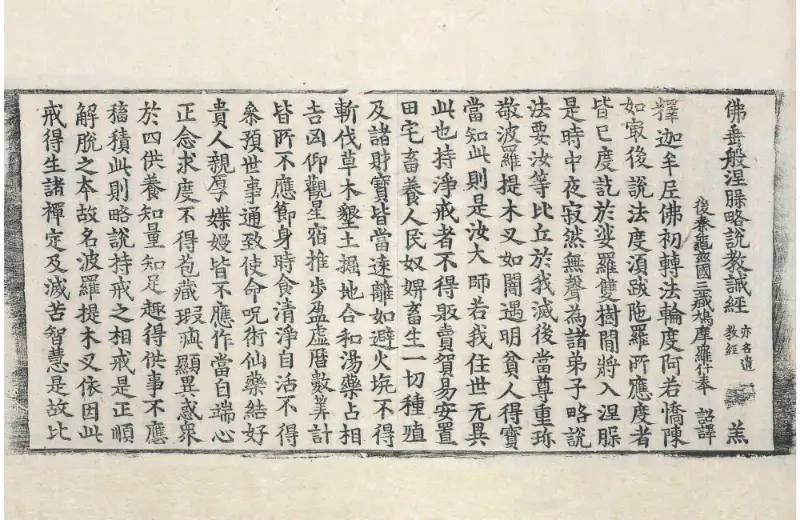 佛垂般涅槃略說教誡經 亦名遺教經 羔
後秦龜茲國三藏鳩摩羅什奉 詔譯
釋迦牟尼佛初轉法輪度阿若憍陳
如㝡後說法度湏跋陁羅所應度者
皆已度訖於娑羅雙樹間將入涅槃
是時中夜寂然無聲為諸弟子略說
法要汝等比丘於我滅後當尊重珎
敬波羅提木叉如闇遇明貧人得寶
當知此則是汝大師若我住世无異
此也持淨戒者不得販賣貿易安置
田宅畜養人民奴婢畜生一切種殖
及諸財寶皆當遠離如避火坑不得
斬伐草木墾土掘地合和湯藥占相
吉凶仰觀星宿推步盈虛曆數筭計
皆所不應節身時食清淨自活不得
叅預世事通致使命呪術仙藥結好
貴人親厚媟嫚皆不應作當自端心
正念求度不得苞藏瑕疵顯異惑眾
於四供養知量知足趣得供事不應
稸積此則略說持戒之相戒是正順
解脫之本故名波羅提木叉依因此
戒得生諸禪定及滅苦智慧是故比